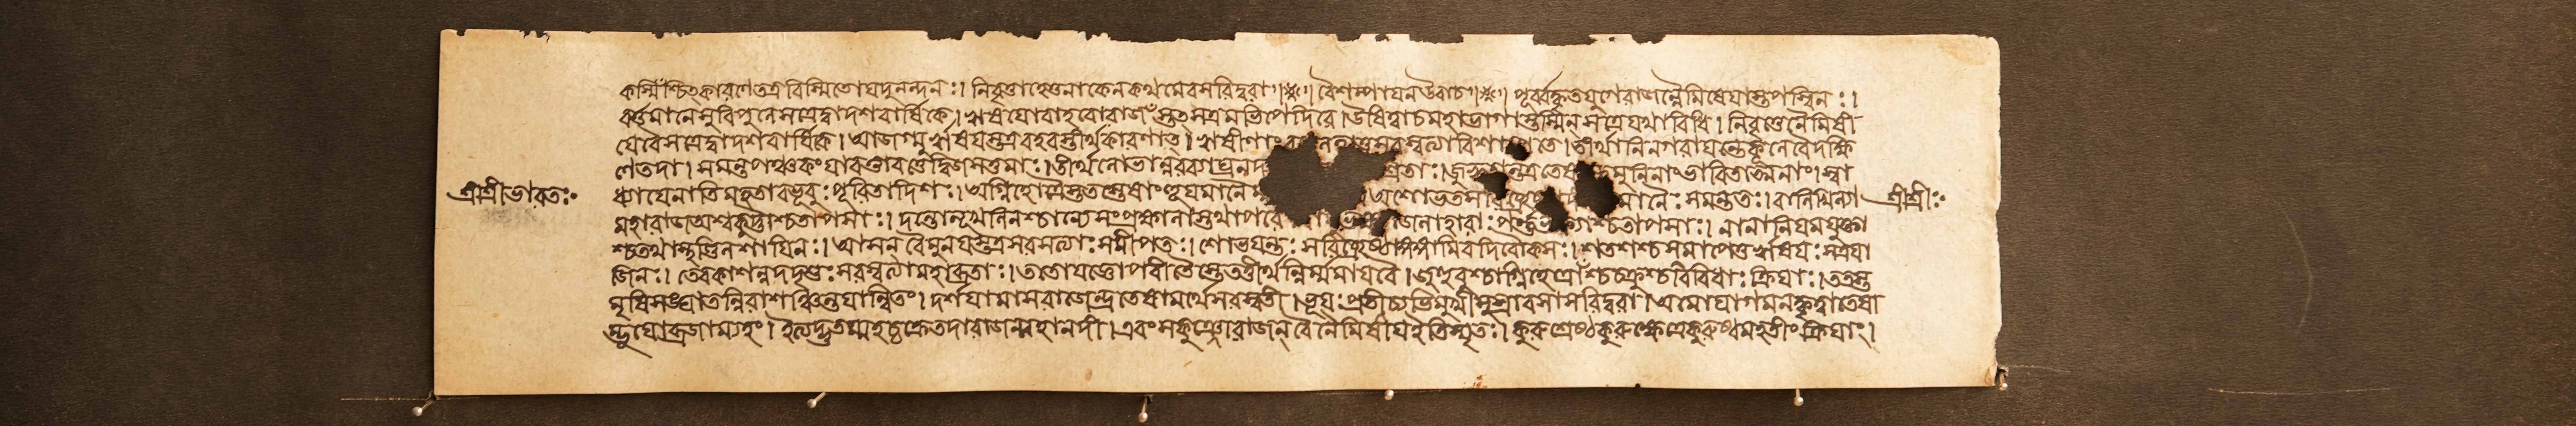 কস্মিংশ্চিৎকারণেতত্রবিস্মিতোযদুনন্দনঃ। নিবৃত্তাহেতুনাকেনকথমেবসরিদ্বরা॥ বৈশম্পায়নউবাচ॥ পূর্ব্বংকৃতযুগেরাজন্নৈমিষেয়াস্তপস্বিনঃ।
বর্ত্তমানেসুবিপুলেসত্রেদ্বাদশবার্ষিকে। ঋষয়োবহবোরাজংস্তৎসত্রমভিপেদিরে। উষিত্বাচমহাভাগাস্তস্মিন্সত্রেযথাবিধি। নিবৃত্তেনৈমিষী
য়েবৈসত্রেদ্বাদশবার্ষিকে। আজগ্মুর্ঋষয়স্তত্রবহবস্তীর্থকারণাৎ। ঋষীণাং সরস্বত্যাবিশাম্পতে। তীর্থানিনগরায়ন্তেকূলেবৈদক্ষি
ণেতদা। সমন্তপঞ্চকংযাবত্তাবত্তেদ্বিজসত্তমাঃ। তীর্থলোভান্নরব্যাঘ্রনদ শ্রিতাঃ। জুহ্বতাংতত্রতেষাং মুনিনাংভাবিতাত্মনাং। স্বা
শ্রীশ্রীভারতঃ ধ্যায়েনাতিমহতাবভূবুঃপূরিতাদিশঃ। অগ্নিহোত্রৈস্ততস্তেষাংহূয়মানৈ অশোভতসরিচ্ছ্রেষ্ঠা মানৈঃসমন্ততঃ। বালিখিল্যা শ্রীশ্রীঃ
মহারাজঅশ্মকুট্টাশ্চতাপসাঃ। দন্তোলূখলিনশ্চান্যেসংপ্রক্ষালাস্তথাপরে জলাহারাঃপর্ণভক্ষাশ্চতাপসাঃ। নানানিয়মযুক্তা
শ্চতথাস্থণ্ডিলশায়িনঃ। আসন্বৈমুনয়স্তত্রসরস্বত্যাঃসমীপতঃ। শোভয়ন্তঃসরিচ্ছ্রেষ্ঠাংগঙ্গামিবদিবৌকসঃ। শতশশ্চসমাপেতুর্ঋষয়ঃসত্রযা
জিনঃ। তেবকাশংনদদৃশুঃসরস্বত্যামহাব্রতাঃ। ততোযজ্ঞোপবীতৈস্তেতত্তীর্থন্নির্ম্মমায়বৈ। জুহুবুশ্চাগ্নিহোত্রাংশ্চচক্রুশ্চবিবিধাঃক্রিয়াঃ। ততস্ত
মৃষিসঙ্ঘাতন্নিরাশঞ্চিন্তয়ান্বিতং। দর্শয়ামাসরাজেন্দ্রতেষামর্থেসরস্বতী। ভূয়ঃপ্রতীচ্যভিমুখীসুস্রাবসাসরিদ্বরা। অমোঘাগমনংকৃত্বাতেষা
ম্ভূয়োব্রজাম্যহং। ইত্যদ্ভুতম্মহচ্চক্রেতদারাজন্মহানদী। এবংসকুঞ্জোরাজন্বৈনৈমিষীয়ইতিস্মৃতঃ। কুরুশ্রেষ্ঠকুরুক্ষেত্রেকুরুষ্বমহতীংক্রিয়াং।